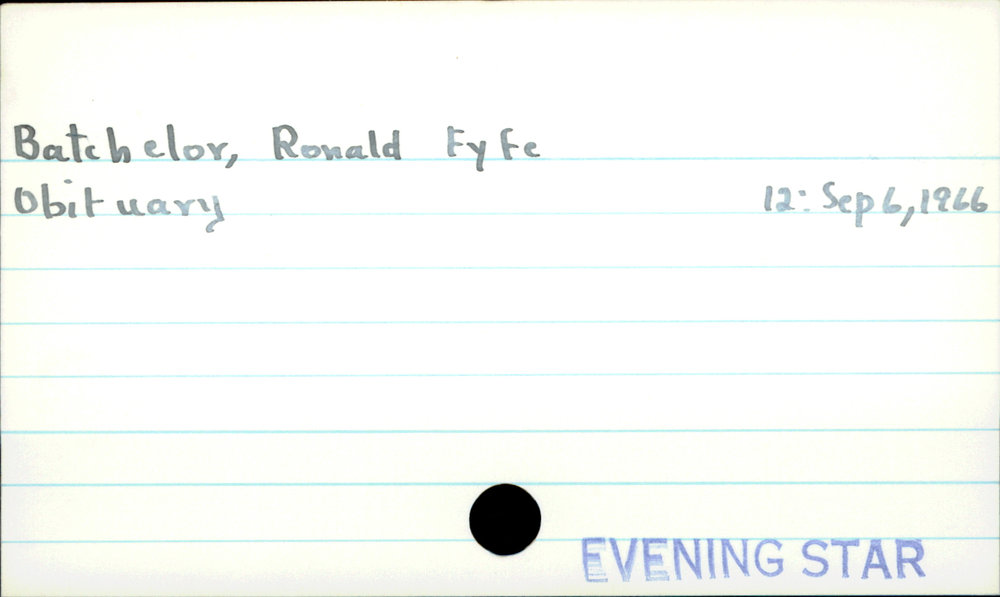 Batchelor, Ronald Fyfe
Obituary 12: Sep 6, 1966
EVENING STAR